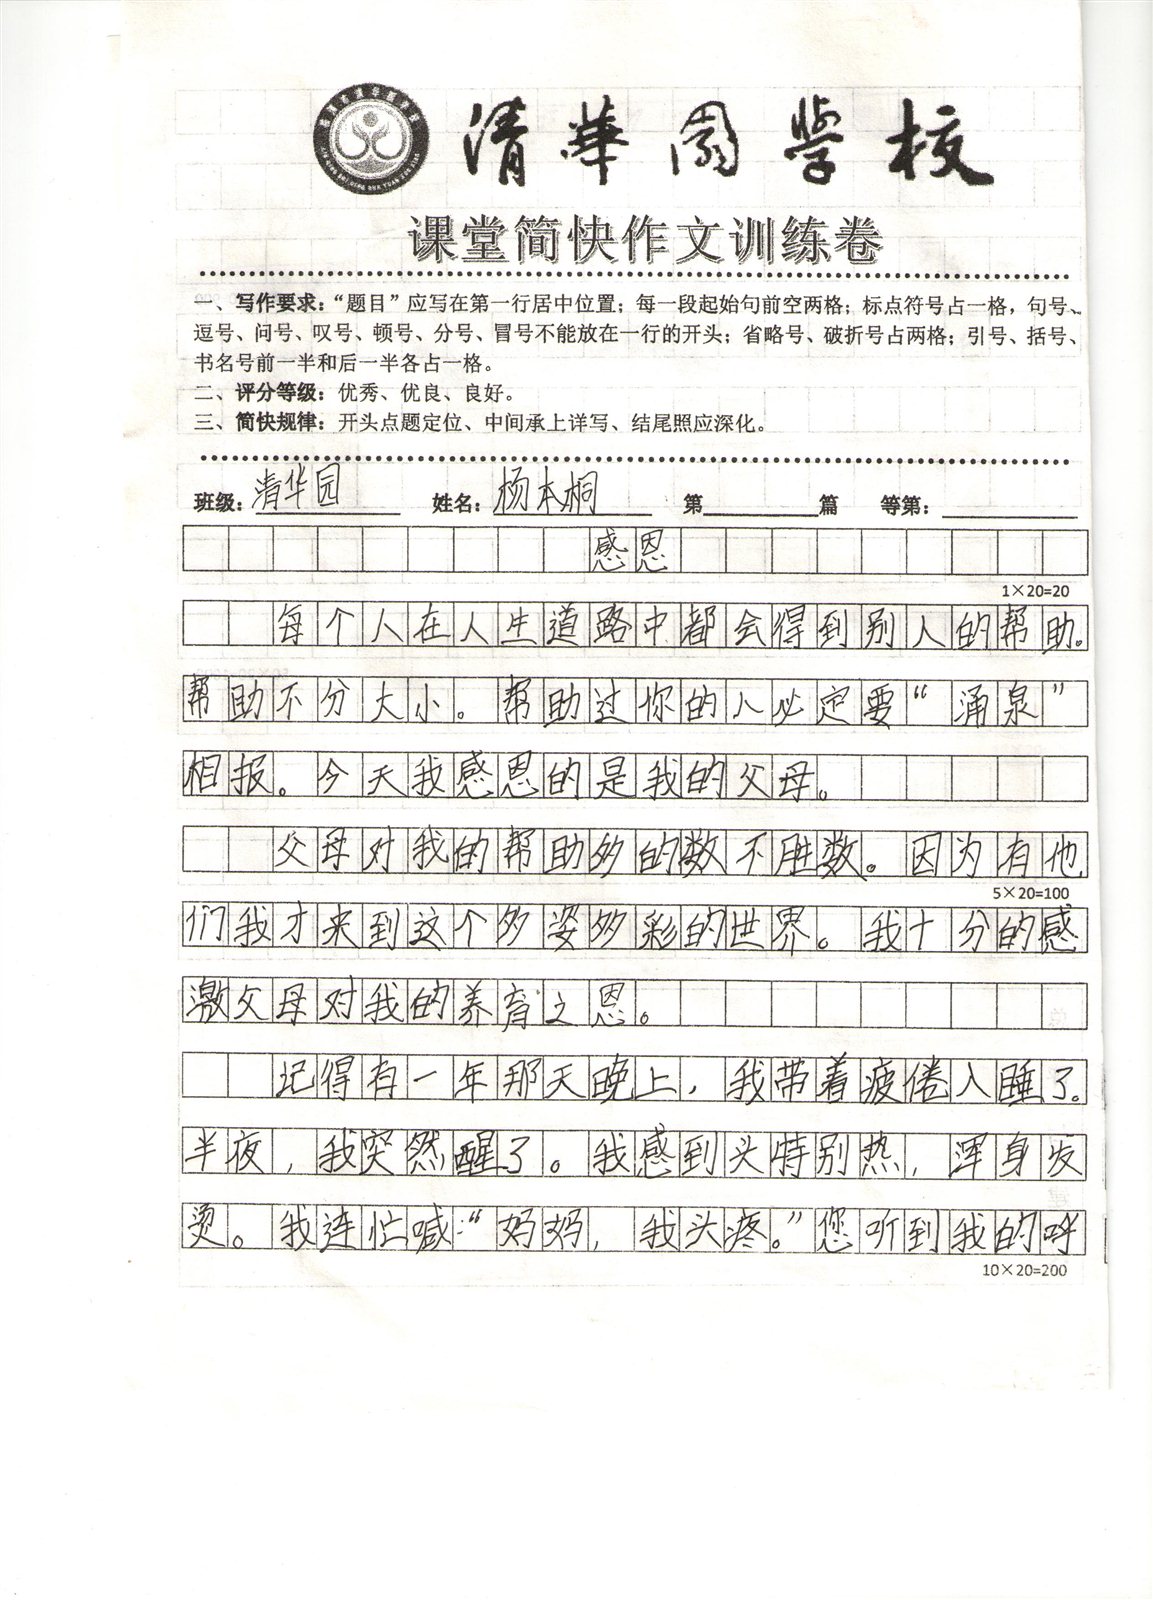 清華園學校
课堂简快作文训练卷
一、写作要求：“题目”应写在第一行居中位置；每一段起始句前空两格；标点符号占一格，句号、
逗号、问号、叹号、顿号、分号、冒号不能放在一行的开头；省略号、破折号占两格；引号、括号、
书名号前一半和后一半各占一格。
二、评分等级：优秀、优良、良好。
三、简快规律：开头点题定位、中间承上详写、结尾照应深化。
班级：清华园 姓名：杨本桐 第 篇 等第：
感恩
1×20=20
每个人在人生道路中都会得到别人的帮助。
帮助不分大小。帮助过你的人必定要“涌泉”
相报。今天我感恩的是我的父母。
父母对我的帮助多的数不胜数。因为有他
5×20=100
们我才来到这个多姿多彩的世界。我十分的感
激父母对我的养育之恩。
记得有一年那天晚上，我带着疲倦入睡了。
半夜，我突然醒了。我感到头特别热，浑身发
烫。我连忙喊：“妈妈，我头疼。”您听到我的呼
10×20=200